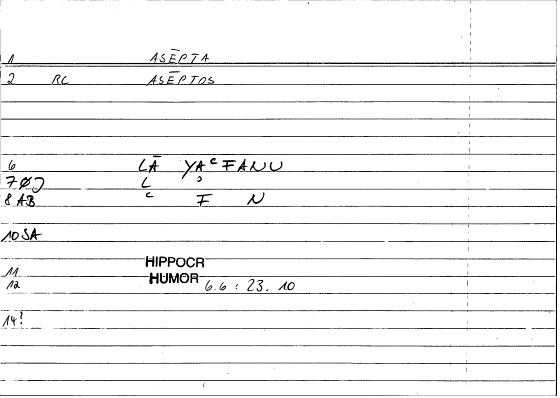 1 ASĒPTA
2 RC ASĒPTOS
6 LĀ YAᶜFANU
7 L ʾ
8 AB ᶜ F N
10 SA
HIPPOCR
11
HUMOR
12 6.6 : 23. 10
14?